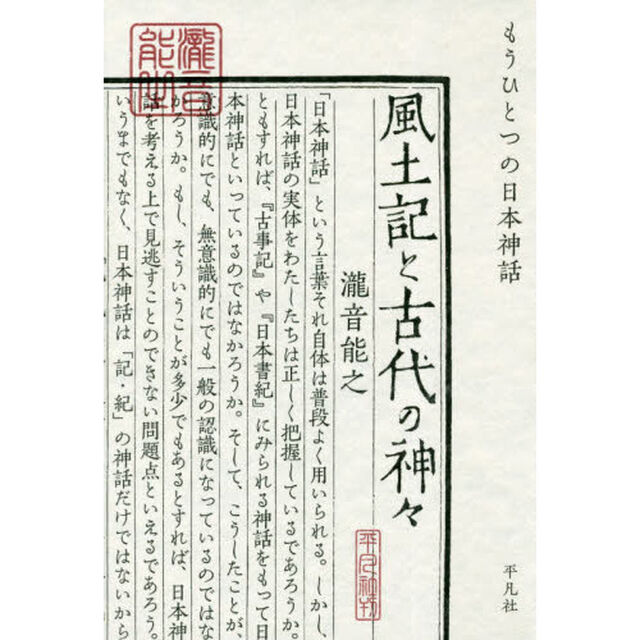 もうひとつの日本神話
平凡社
風土記と古代の神々
瀧音能之
平凡社刊
「日本神話」という言葉それ自体は普段よく用いられる。しかし、
日本神話の実体をわたしたちは正しく把握しているであろうか。
ともすれば、『古事記』や『日本書紀』にみられる神話をもって日
本神話といっているのではなかろうか。そして、こうしたことが、
意識的にでも、無意識的にでも一般の認識になっているのではな
かろうか。もし、そういうことが多少でもあるとすれば、日本神
話を考える上で見逃すことのできない問題点といえるであろう。
いうまでもなく、日本神話は「記・紀」の神話だけではないから
瀧音能之